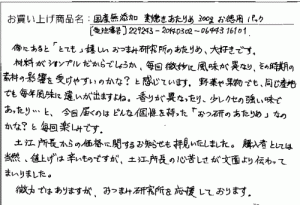 お買い上げ商品名：国産無添加 素焼きあたりめ 200g お徳用 1パック
【受注番号】229243-20140302-0644316101
傍にあると「とても」嬉しいおつまみ研究所のあたりめ、大好きです。
材料がシンプルだからでしょうか、毎回微妙に風味が異なり、その時期の
素材の影響を受けやすいのかな？と感じています。野菜や果物でも、同じ産地
でも毎年風味に違いが出ますよね。香りが異なったり、少しクセの強い味で
あったり…と、今回届くのはどんな個性を持った「おつ研のあたりめ」なの
かな？と毎回楽しみです。
土江所長からの価格に関するお知らせを拝見いたしました。購入者としては
当然、値上げは辛いものですが、土江所長の心苦しさが文面より伝わって
まいりました。
微力ではありますが、おつまみ研究所を応援しております。